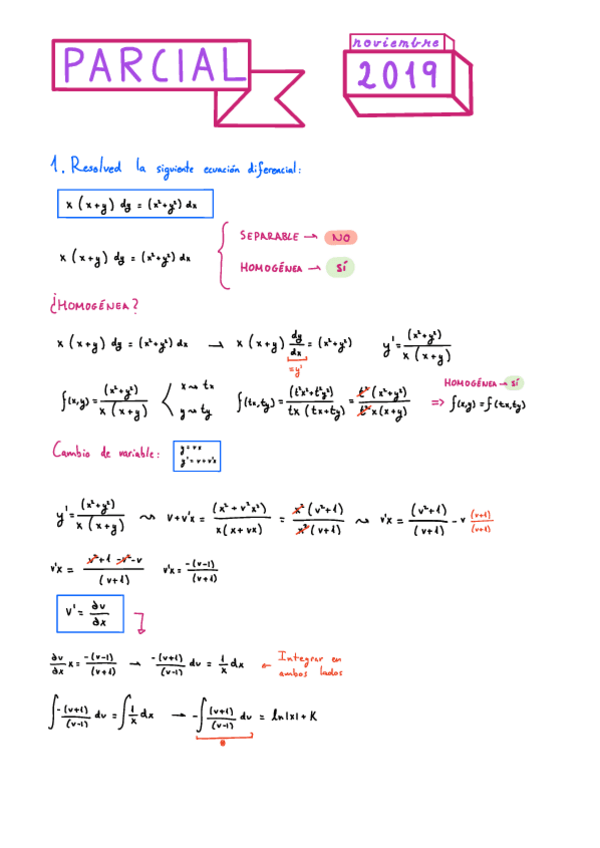 PARCIAL
noviembre
2019
1. Resolved la siguiente ecuación diferencial:
x (x+y) dy = (x²+y²) dx
x (x+y) dy = (x²+y²) dx
SEPARABLE → NO
HOMOGÉNEA → SÍ
¿HOMOGÉNEA?
x (x+y) dy = (x²+y²) dx → x (x+y) dy/dx = (x²+y²) y' = (x²+y²)/x (x+y)
=y'
HOMOGÉNEA → SÍ
f(x,y) = (x²+y²)/x (x+y) x → tx y → ty f(tx,ty) = (t²x²+t²y²)/tx (tx+ty) = t²(x²+y²)/t²x(x+y) => f(x,y) = f(tx,ty)
Cambio de variable: y = vx
y' = v+v'x
y' = (x²+y²)/x (x+y) ⇝ v+v'x = (x²+v²x²)/x(x+vx) = x²(v²+1)/x²(v+1) ⇝ v'x = (v²+1)/(v+1) - v (v+1)/(v+1)
v'x = v²+1-v²-v/(v+1) v'x = -(v-1)/(v+1)
v' = ∂v/∂x
∂v/∂x x = -(v-1)/(v+1) → -(v+1)/(v-1) dv = 1/x dx ← Integrar en
ambos lados
∫-(v+1)/(v-1) dv = ∫1/x dx → -∫(v+1)/(v-1) dv = ln|x| + K